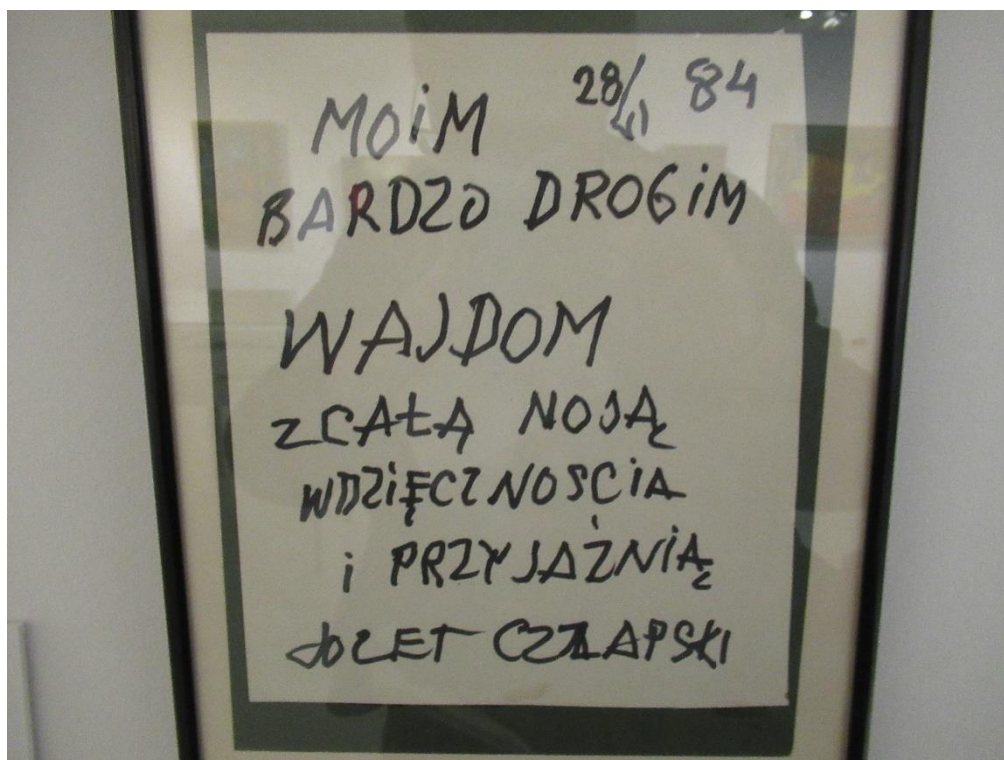 28/VI 84
MOiM
BARDZO DROGiM
WAJDOM
z CAŁĄ MOJĄ
WDZiĘCZNOSCIA
i PRZYJAŹNIĄ
JOZEF CZAPSKI